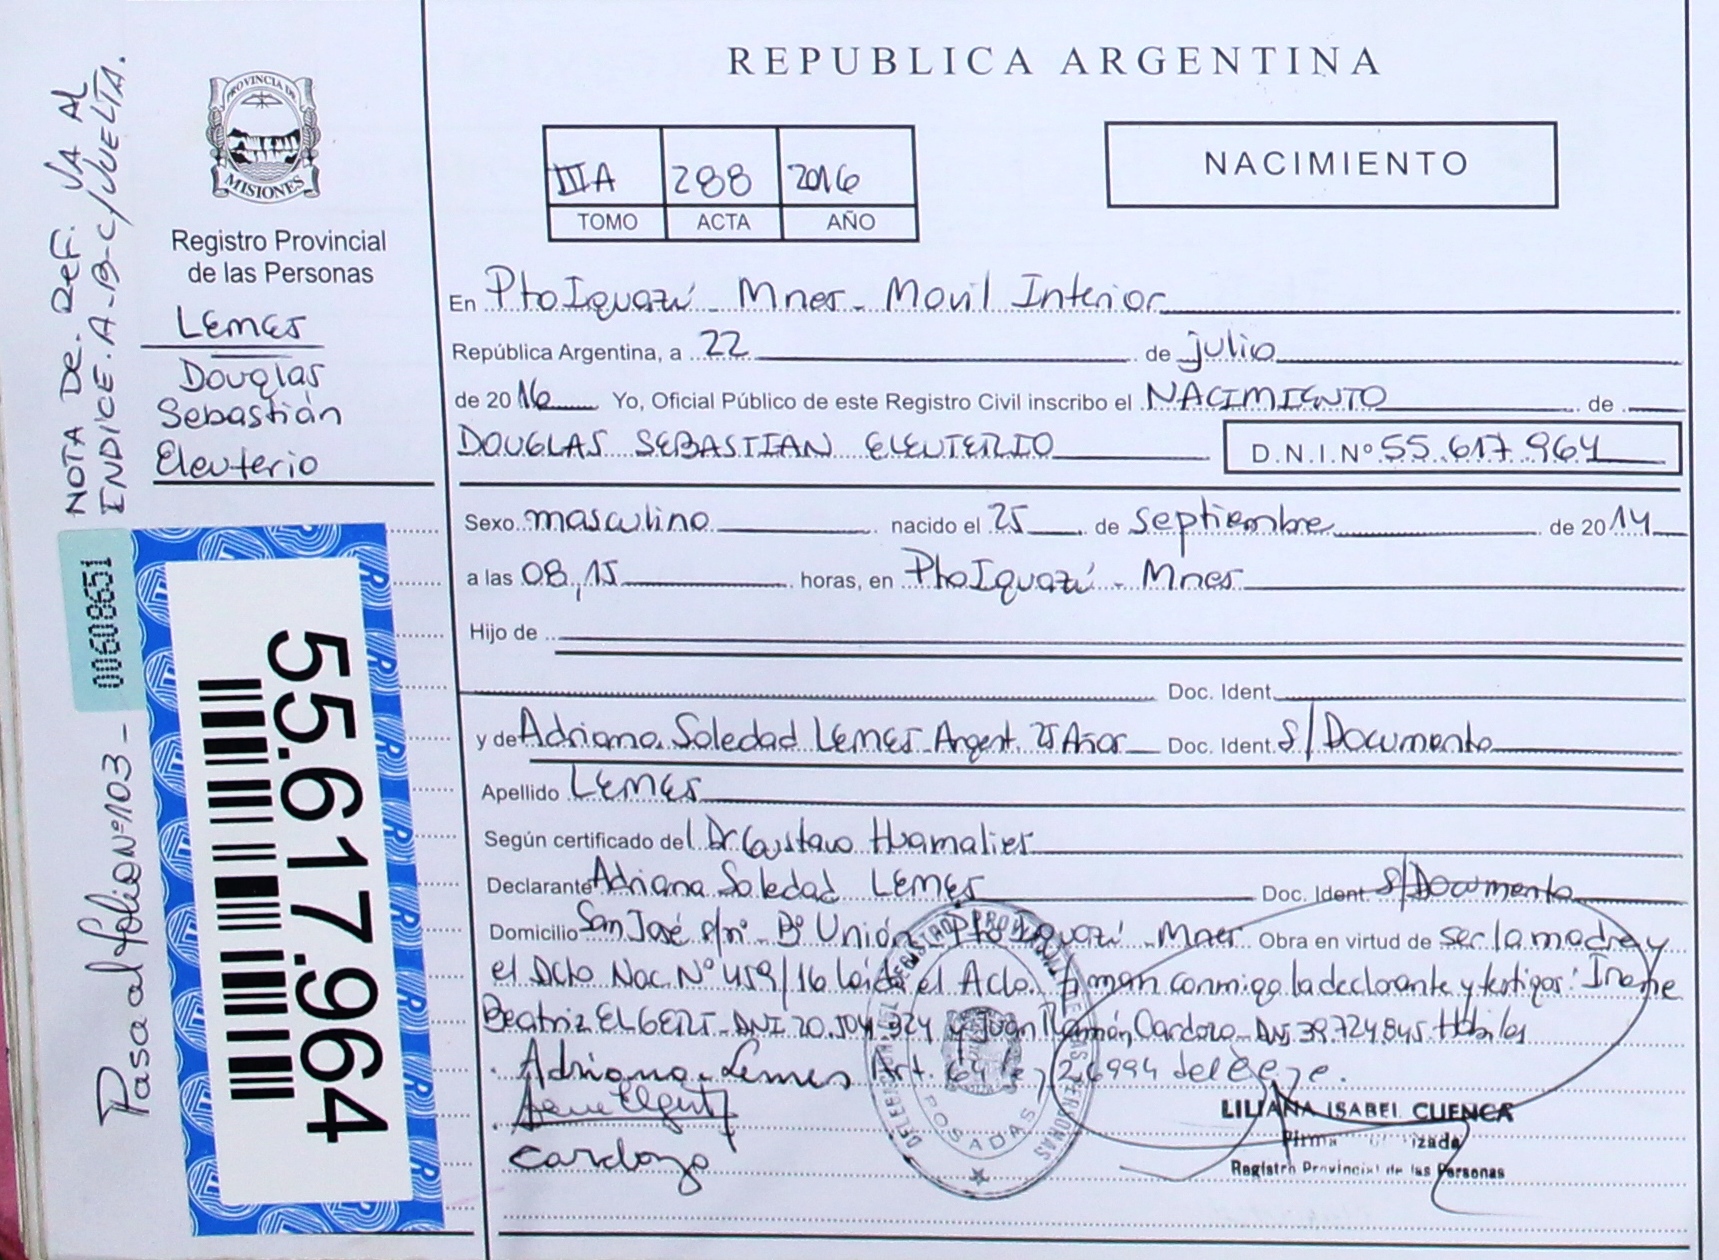 REPUBLICA ARGENTINA
NOTA De. Ref. VA Al
INDICE. A-B-C/VUELTA.
PROVINCIA DE
MISIONES
Registro Provincial
de las Personas
Lemes
Douglas
Sebastián
Eleuterio
00608651
Pasa al folio Nº 103 -
55.617.964
IIIA 288 2016
TOMO ACTA AÑO
NACIMIENTO
En Pto Iguazú - Mnes - Movil Interior
República Argentina, a 22 de julio
de 2016 Yo, Oficial Público de este Registro Civil inscribo el NACIMIENTO de
DOUGLAS SEBASTIAN ELEUTERIO D.N.I.Nº 55.617.964
Sexo masculino nacido el 25 de septiembre de 2014
a las 08,15 horas, en Pto Iguazú - Mnes
Hijo de
Doc. Ident.
y de Adriana Soledad Lemes - Argent. 25 Años Doc. Ident. S/Documento
Apellido LEMES
Según certificado del Dr Gustavo Huamalies
Declarante Adriana Soledad Lemes Doc. Ident. S/Documento
Domicilio San José s/nº - Bº Unión - Pto Iguazú - Mnes Obra en virtud de ser la madre y
el Dcto Nac. Nº 459/16 leída el Acta. Firman conmigo la declarante y testigos: Irene
Beatriz ELGERT - DNI 20.504.324 y Juan Ramón Cardozo - DNI 39.724.845. Hábiles
Adriana Lemes Art. 64 ley 26994 del
Irene Elgert
Cardozo
POSADAS
LILIANA ISABEL CUENCA
Firma izada
Registro Provincial de las Personas